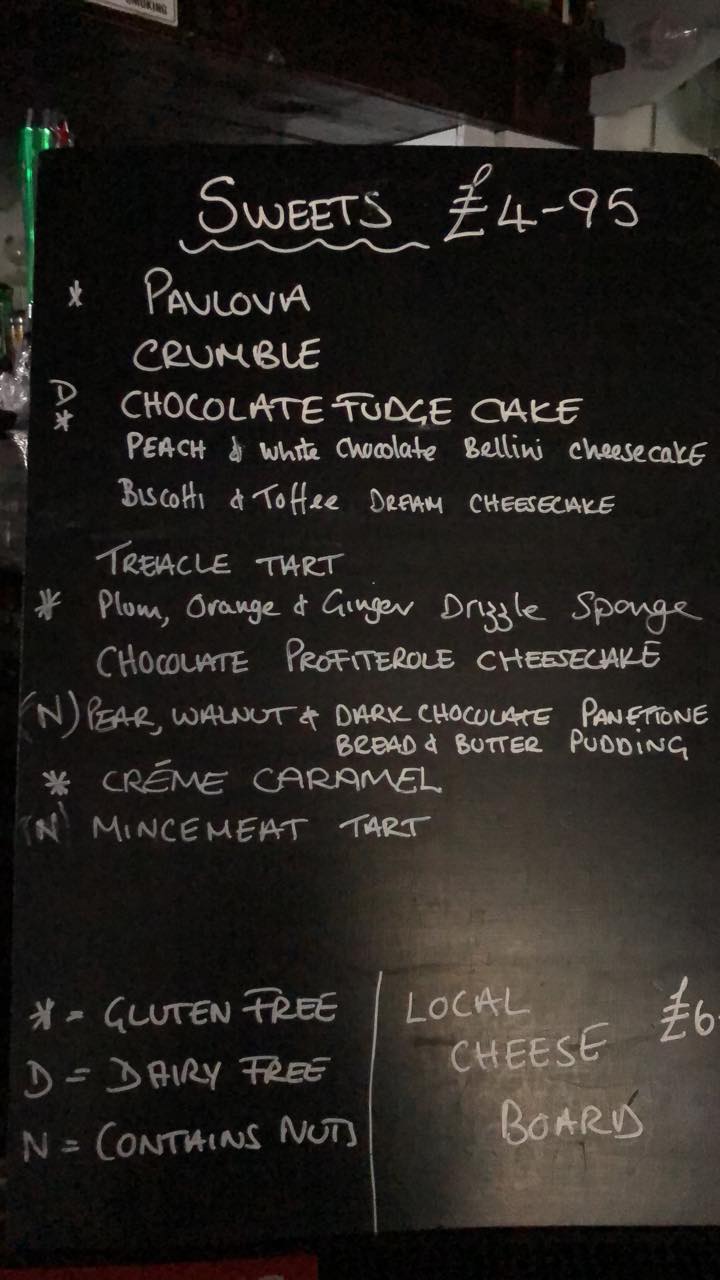 SMOKING
SWEETS £4-95
* PAVLOVA
CRUMBLE
D
* CHOCOLATE FUDGE CAKE
PEACH & White Chocolate Bellini CheesecakE
Biscotti & Toffee DREAM CHEESECAKE
TREACLE TART
* Plum, Orange & Ginger Drizzle Sponge
CHOCOLATE PROFITEROLE CHEESECAKE
(N) PEAR, WALNUT & DARK CHOCOLATE PANETTONE
BREAD & BUTTER PUDDING
* CRÉME CARAMEL
(N) MINCEMEAT TART
* = GLUTEN FREE
D = DAIRY FREE
N = CONTAINS NUTS
LOCAL £6.
CHEESE
BOARD